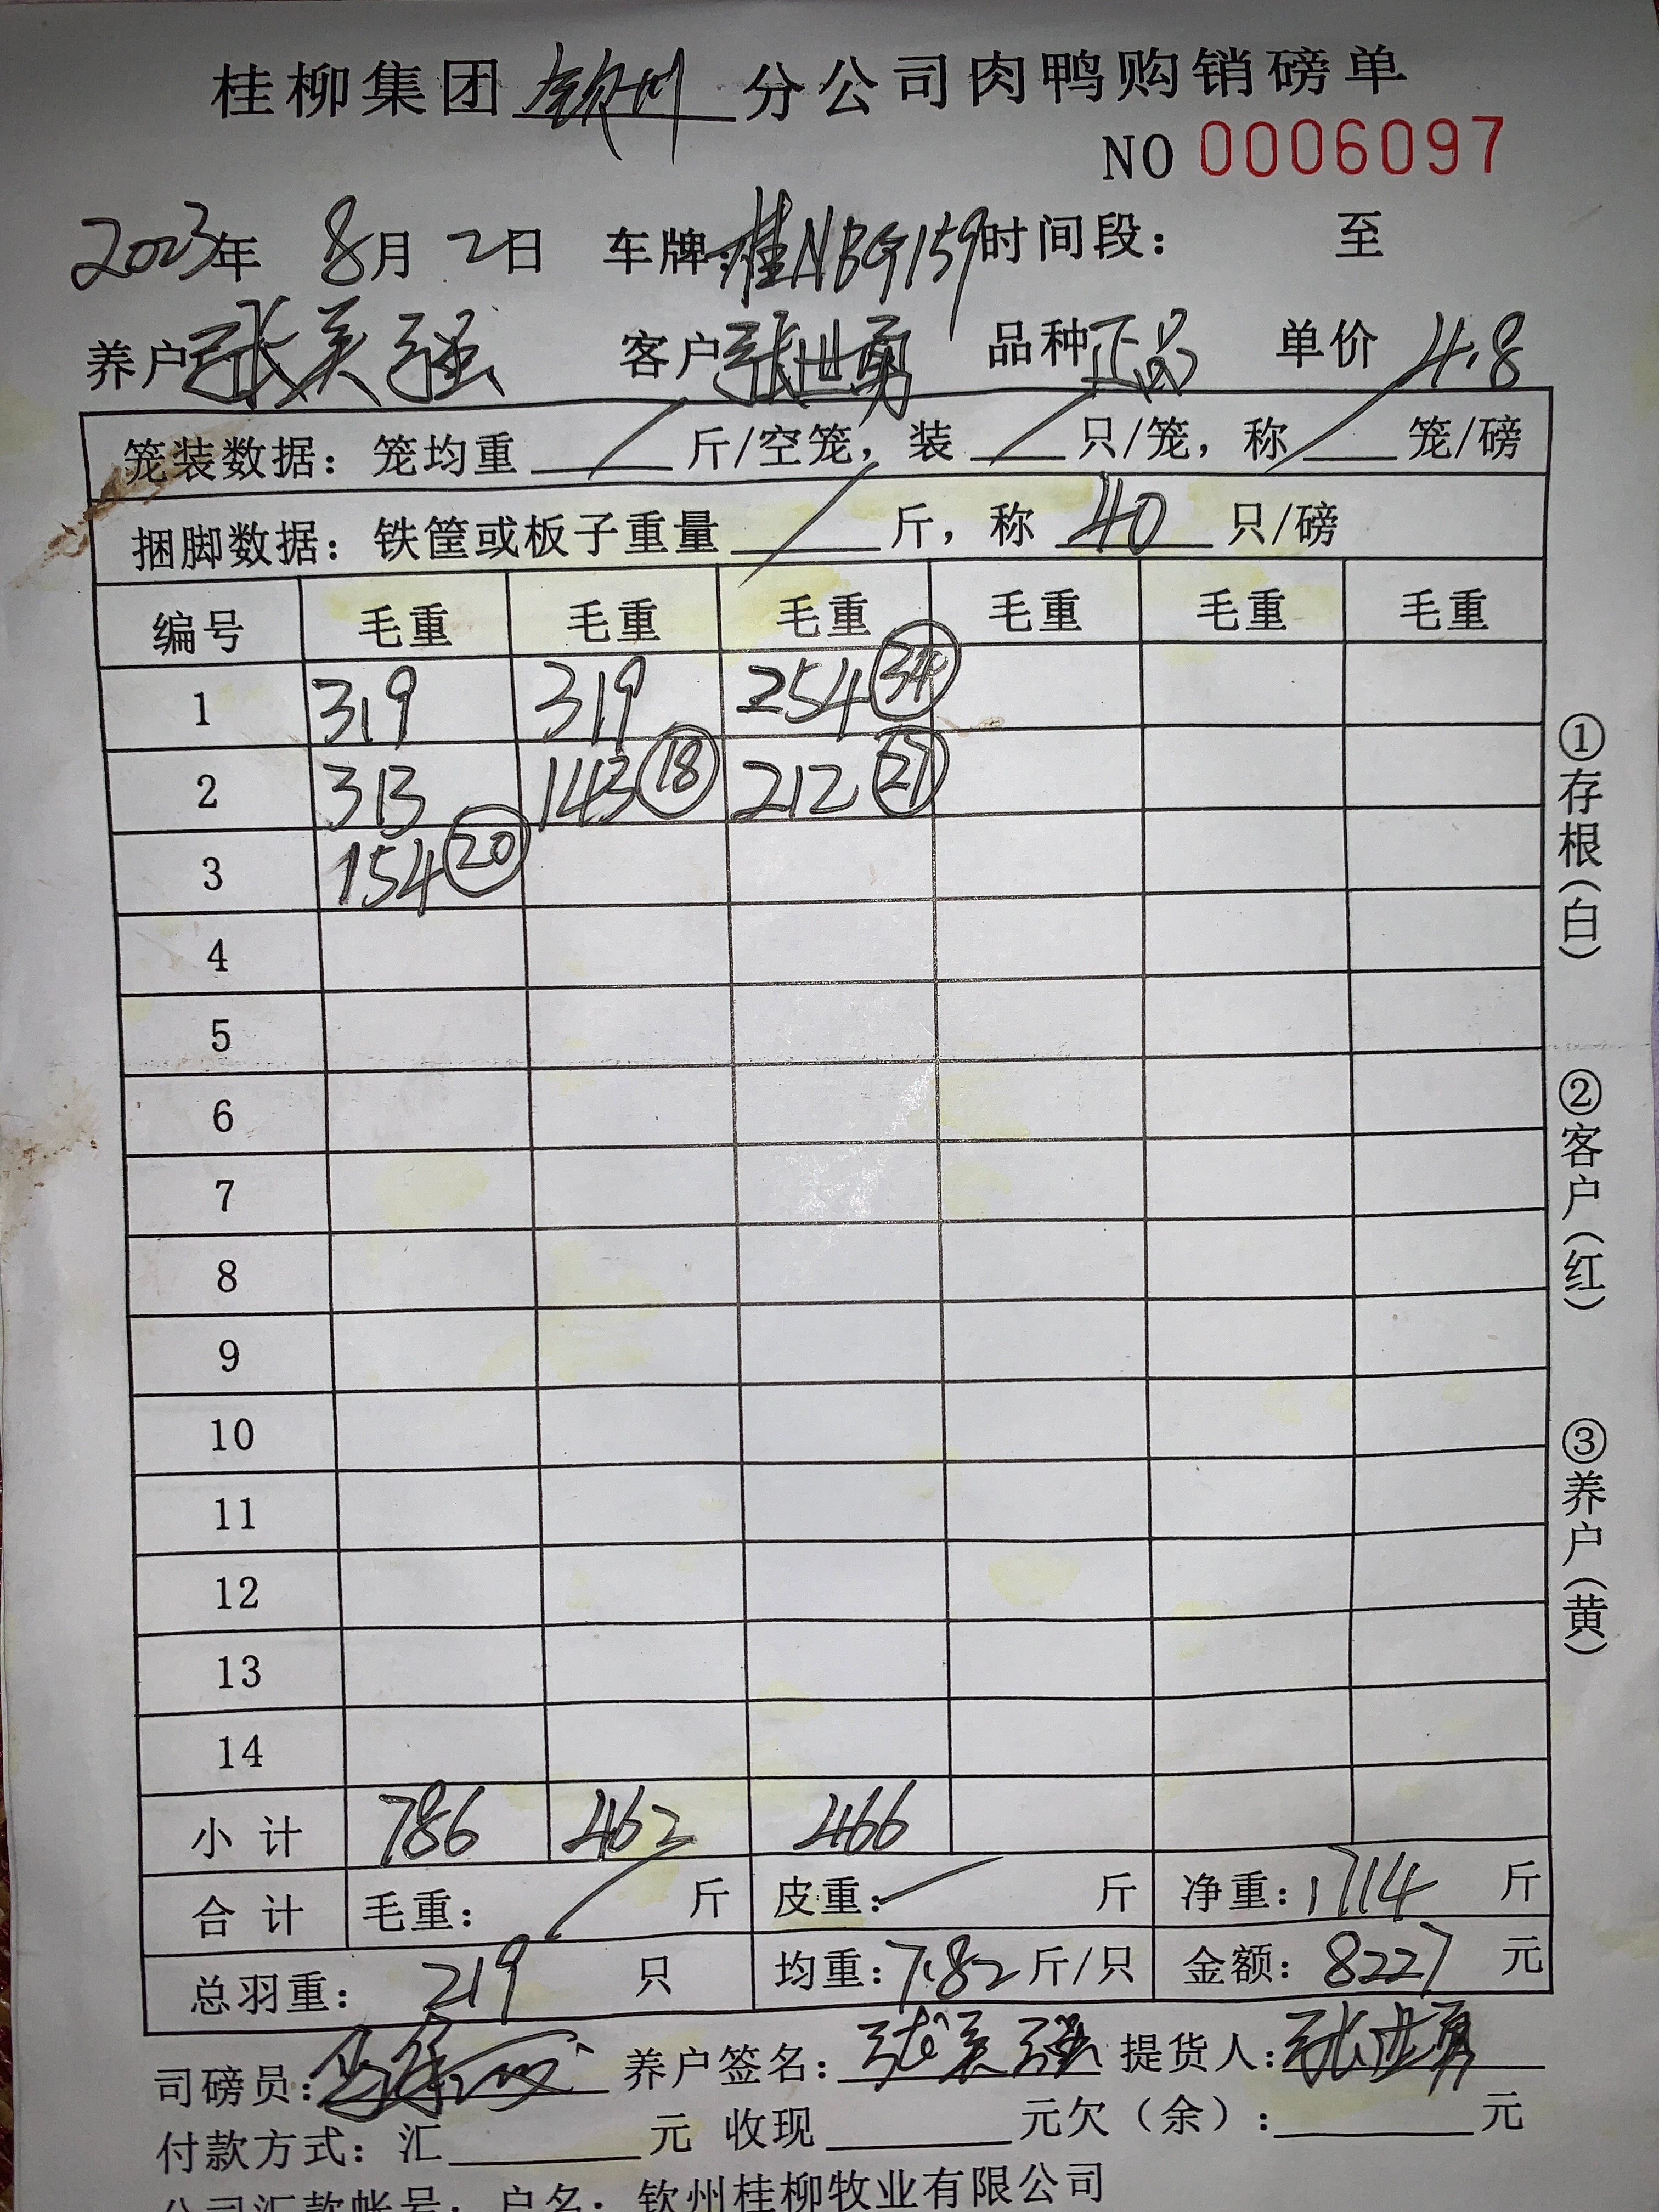 桂柳集团 钦州 分公司肉鸭购销磅单
NO 0006097
2023年 8月 2日 车牌:桂NBG159 时间段: 至
养户 张美强 客户 张世勇 品种 正品 单价 4.8
笼装数据: 笼均重 / 斤/空笼, 装 / 只/笼, 称 / 笼/磅
捆脚数据: 铁筐或板子重量 / 斤, 称 40 只/磅
编号 毛重 毛重 毛重 毛重 毛重 毛重
1 319 319 254 34
2 313 143 18 212 27
3 154 20
4
5
6
7
8
9
10
11
12
13
14
小计 786 462 466
合计 毛重: / 斤 皮重: / 斤 净重: 1714 斤
总羽重: 219 只 均重: 7.82 斤/只 金额: 8227 元
司磅员: 养户签名: 张美强 提货人: 张世勇
付款方式: 汇 元 收现 元欠(余): 元
公司汇款帐号: 户名: 钦州桂柳牧业有限公司
①存根(白)
②客户(红)
③养户(黄)